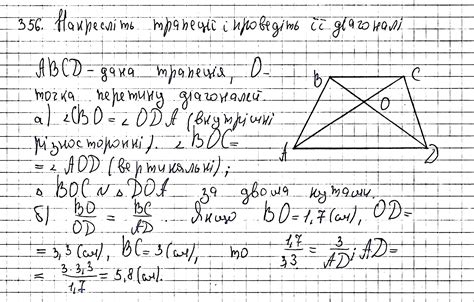 356. Накресліть трапеції і проведіть її діагоналі.
ABCD - дана трапеція, O-
точка перетину діагоналей.
а) ∠CBO = ∠ODA (внутрішні
різносторонні). ∠BOC =
= ∠AOD (вертикальні);
△ BOC ~ △ DOA за двома кутами.
б) BO/OD = BC/AD. Якщо BO = 1,7 (см), OD =
= 3,3 (см), BC = 3 (см), то 1,7/3,3 = 3/AD; AD =
= 3·3,3/1,7 = 5,8 (см).
B C
O
A D